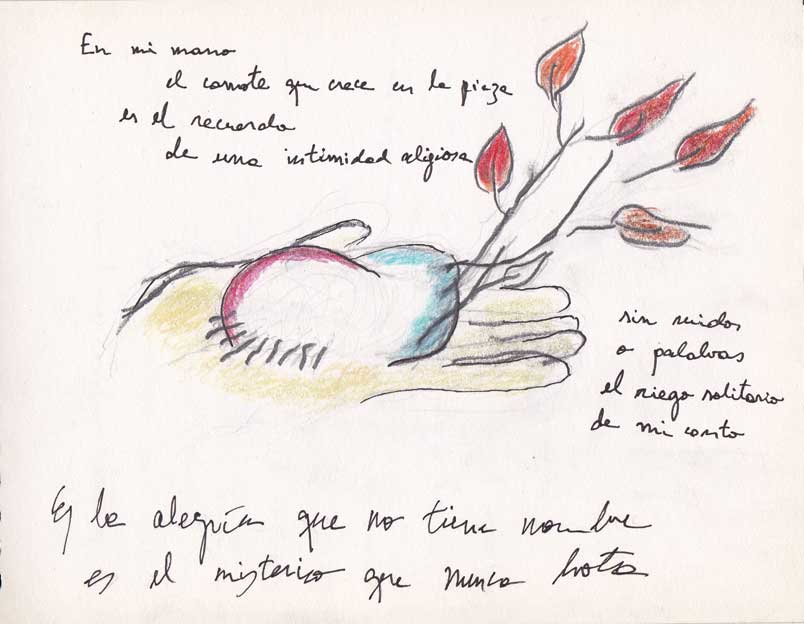 En mi mano
el camote que crece en la pieza
es el recuerdo
de una intimidad religiosa
sin ruidos
o palabras
el riego solitario
de mi
Es la alegría que no tiene nombre
es el misterio que nunca brota